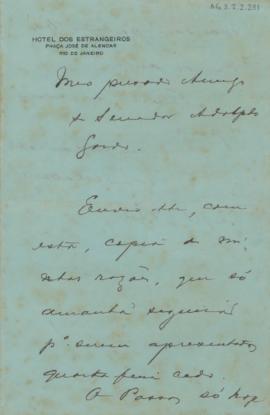 AG 3.2.2.291
HOTEL DOS ESTRANGEIROS
PRAÇA JOSÉ DE ALENCAR
RIO DE JANEIRO
Meu presado Amigo
Senador Adolpho
Gordo.
Envio-lhe, com
esta, copia de mi-
nhas razões, que só
amanhã seguirá
pª. serem apresentadas
quarta feira cedo.
O Passos só hoje